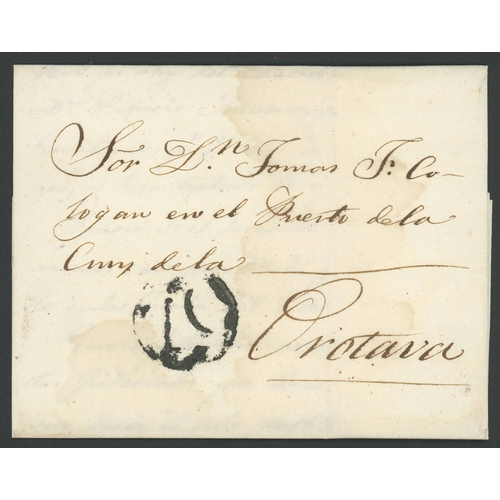 Sor. Dn. Tomas F. Co-
logan en el Puerto de la
Cruz de la
Orotava